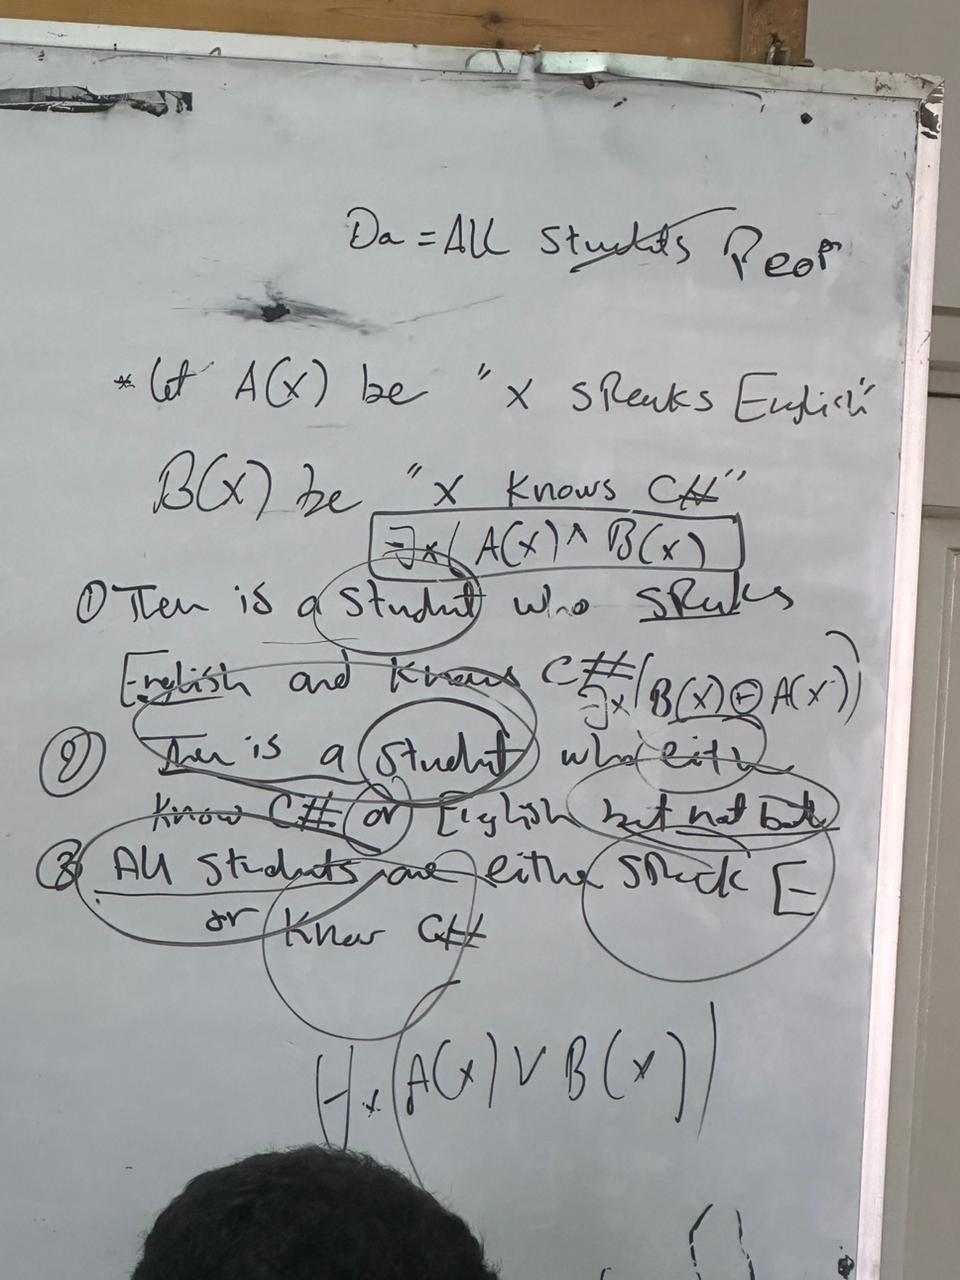 Da = All Students Peop
* let A(x) be "x speaks English"
B(x) be "x knows C#"
∃x(A(x) ∧ B(x)
① There is a student who speaks
English and knows C#
∃x(B(x) ⊕ A(x))
② There is a student who either
know C# or English but not both
③ All students are either speak E
or know C#
∀x(A(x) ∨ B(x))